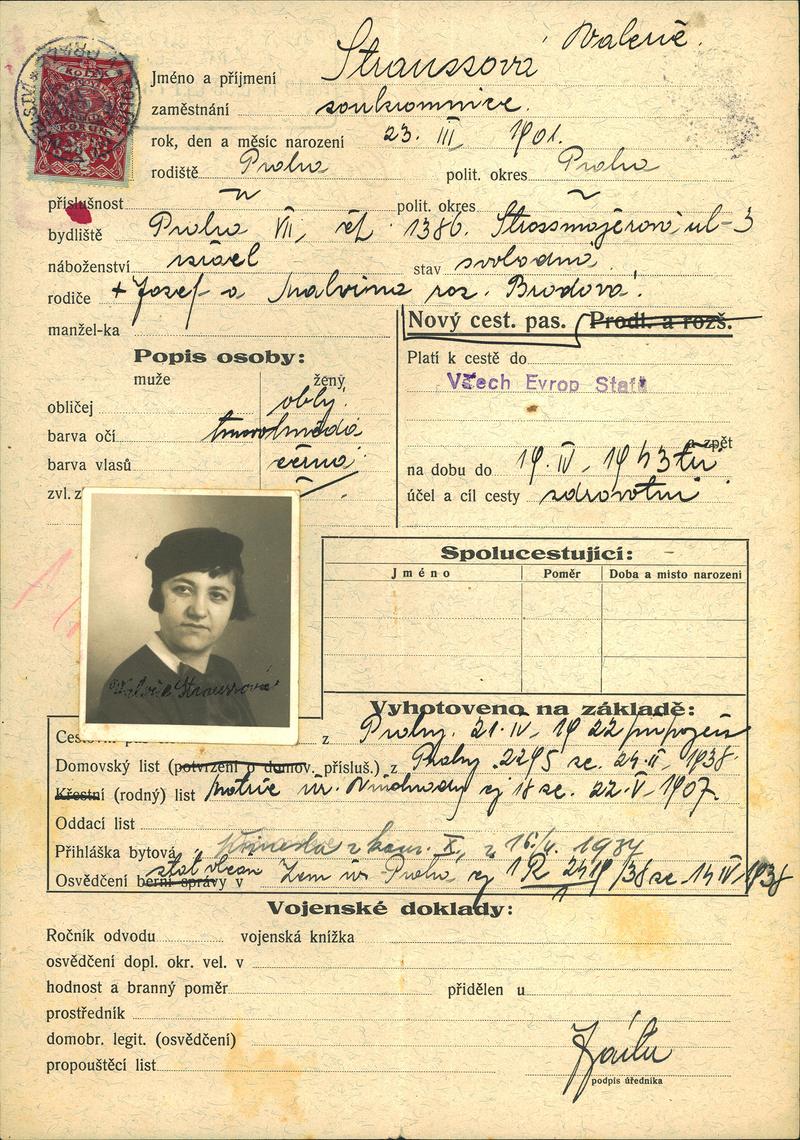 KOLEK
Jméno a příjmení Straussová Valerie.
zaměstnání soukromnice.
rok, den a měsíc narození 23. III. 1901.
rodiště Praha polit. okres Praha
příslušnost " polit. okres "
bydliště Praha VII, čp. 1386. Strossmajerova ul-3
náboženství israel stav svobodná
rodiče + Josef a Malvina roz. Brodová.
manžel-ka
Nový cest. pas. Prodl. a rozš.
Popis osoby:
muže ženy
obličej oblý.
barva očí tmavohnědá
barva vlasů černá
zvl. z
Platí k cestě do
Všech Evrop Států
a zpět
na dobu do 19. IV. 1943
účel a cíl cesty zdravotní
Valerie Straussová
Spolucestující:
Jméno Poměr Doba a místo narození
Vyhotoveno na základě:
z Prahy. 21. IV. 1922
Domovský list (potvrzení o domov. přísluš.) z Prahy 2295 ze 24. II. 1938.
Křestní (rodný) list Matrice Vinohrady čj 18 ze. 22. V. 1907.
Oddací list
Přihláška bytová X, z 16/4. 1934
Osvědčení berní správy v stát. Praha, čj 1 R 2419/38 ze 14 IV 1938
Vojenské doklady:
Ročník odvodu vojenská knížka
osvědčení dopl. okr. vel. v
hodnost a branný poměr přidělen u
prostředník
domobr. legit. (osvědčení)
propouštěcí list
podpis úředníka